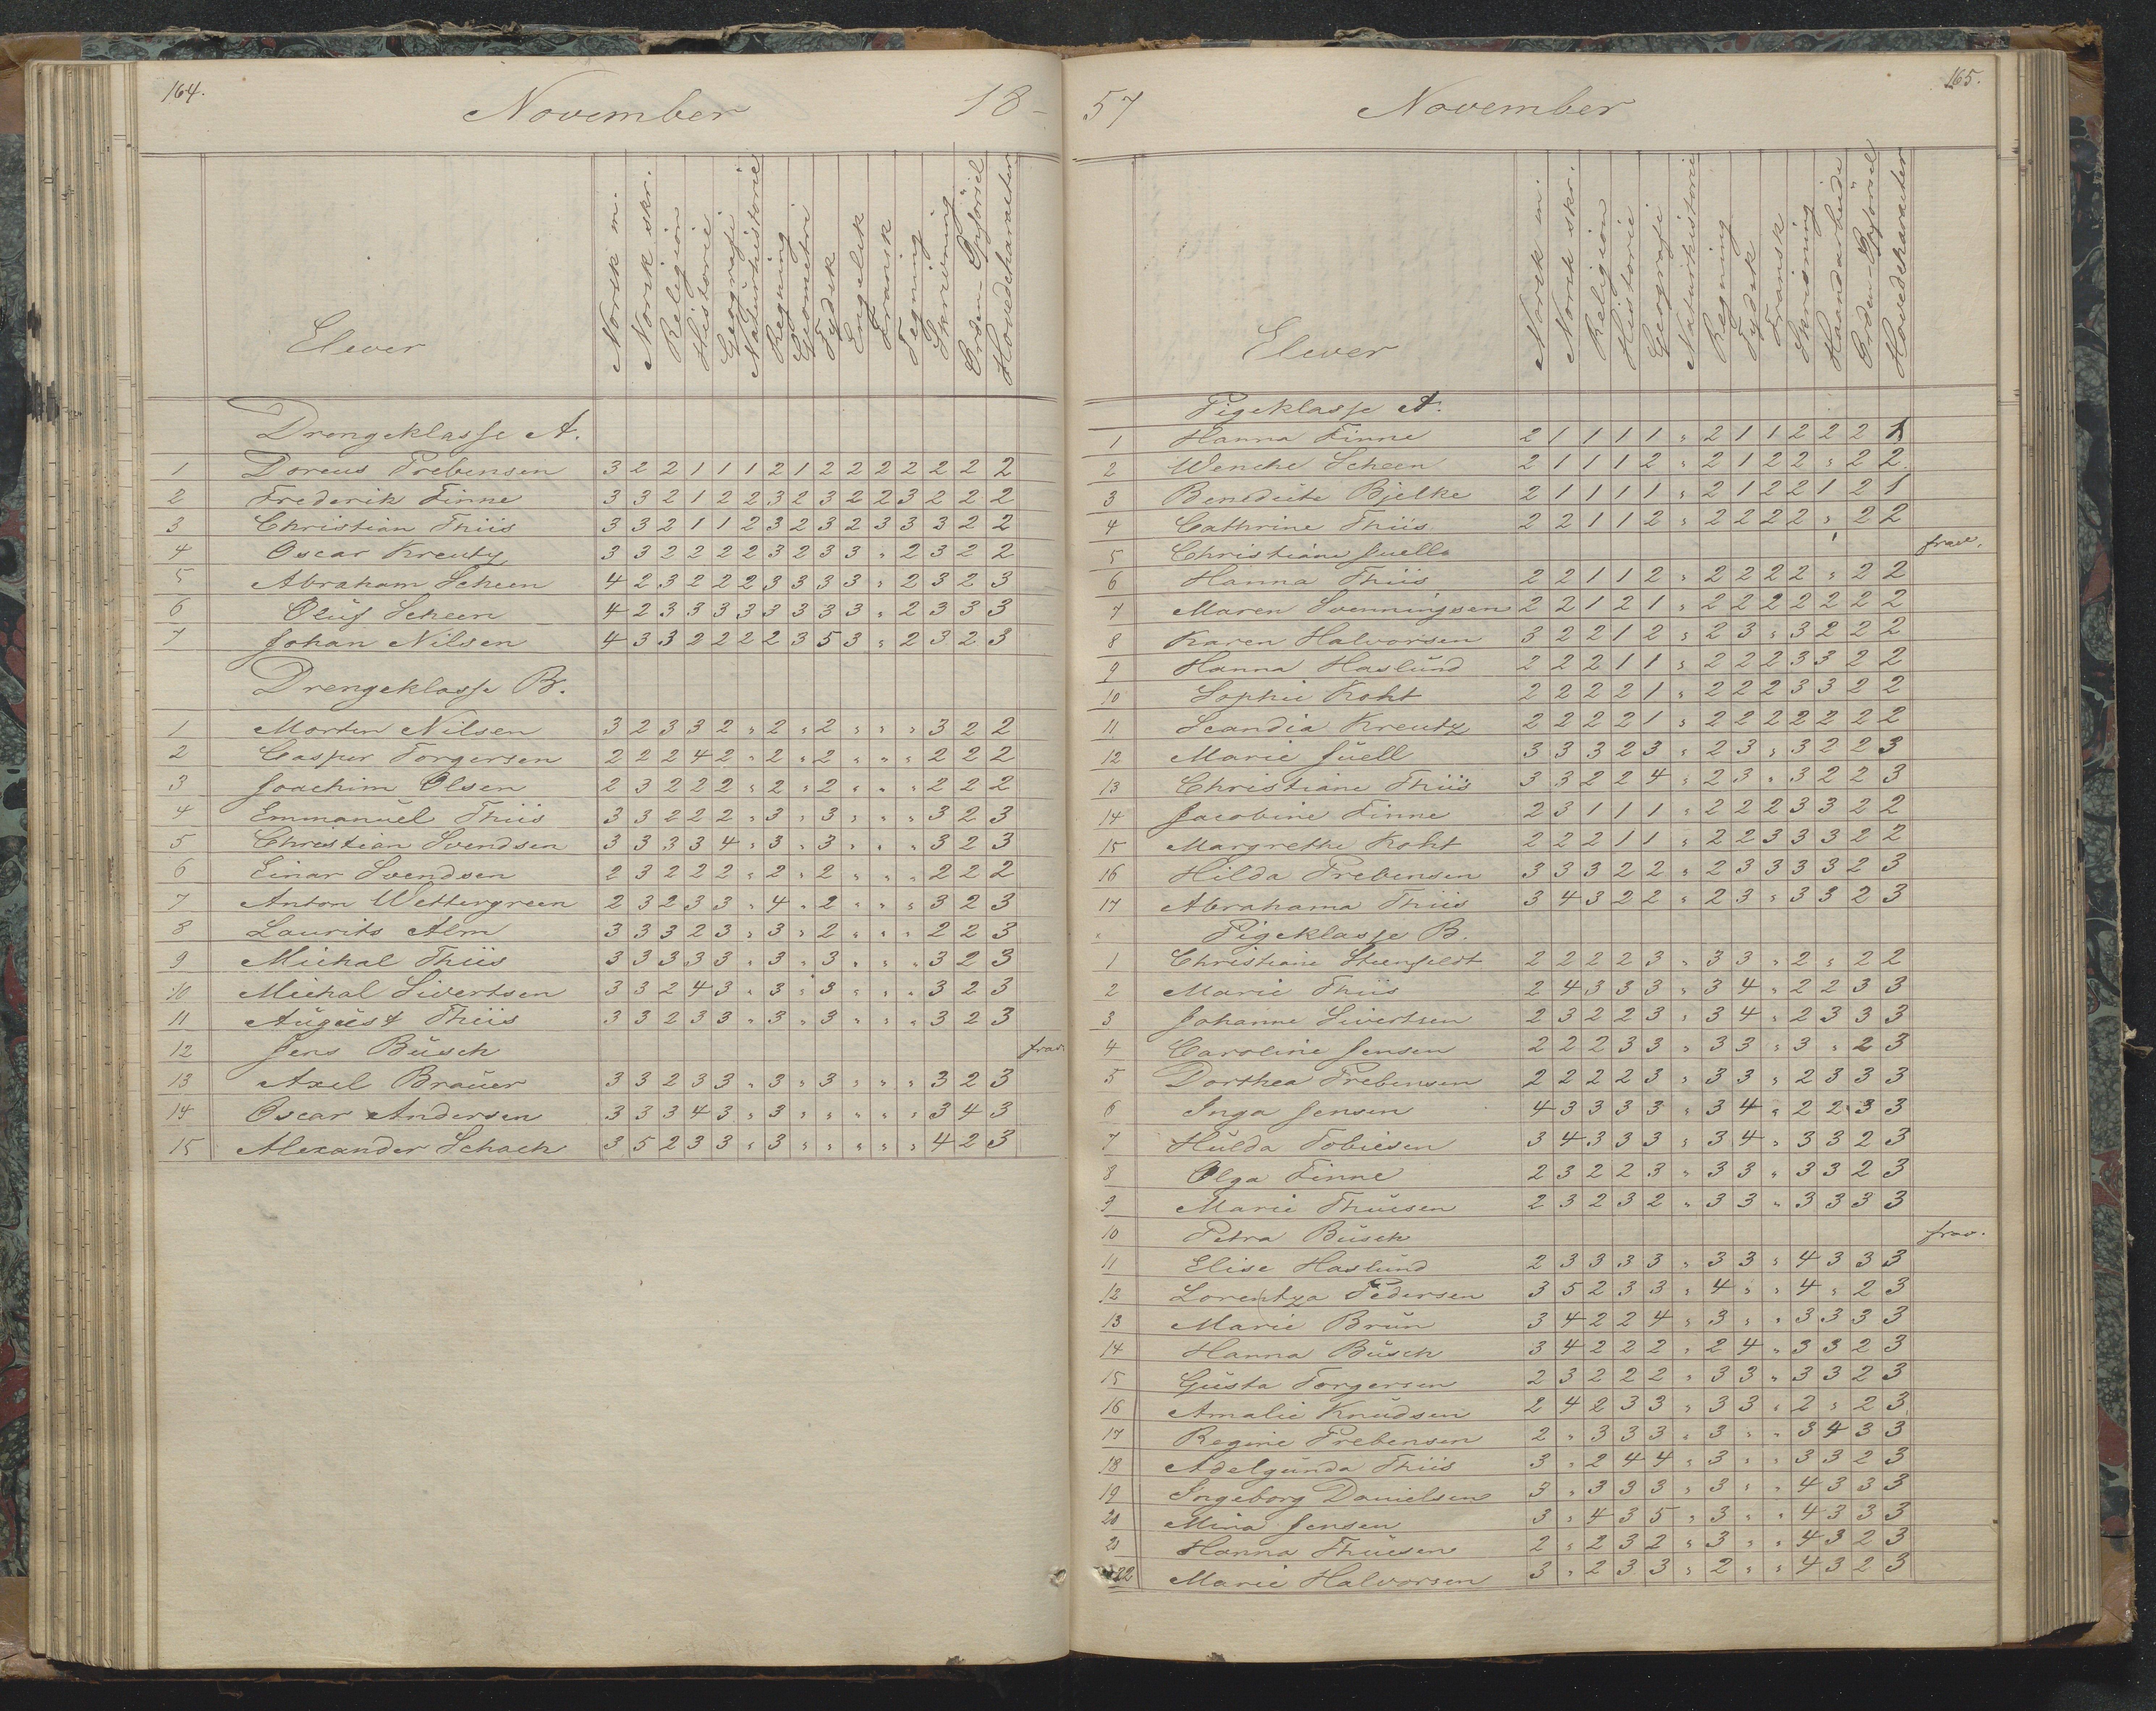 164.
November 18-
Elever
Norsk m.
Norsk skr.
Religion
Historie
Geografi
Naturhistorie
Regning
Geometri
Tydsk
Engelsk
Fransk
Tegning
Skrivning
Orden-Opförsel
Hovedcharacter
Drengeklasse A.
1 Doreus Prebensen 3 2 2 1 1 1 2 1 2 2 2 2 2 2 2
2 Frederik Finne 3 3 2 1 2 2 3 2 3 2 2 3 2 2 2
3 Christian Thiis 3 3 2 1 1 2 3 2 3 2 3 3 3 2 2
4 Oscar Kreutz 3 3 2 2 2 2 3 2 3 3 " 2 3 2 2
5 Abraham Scheen 4 2 3 2 2 2 3 3 3 3 " 2 3 2 3
6 Oluf Scheen 4 2 3 3 3 3 3 3 3 3 " 2 3 3 3
7 Johan Nilsen 4 3 3 2 2 2 2 3 5 3 " 2 3 2 3
Drengeklasse B.
1 Morten Nilsen 3 2 3 3 2 " 2 " 2 " " " 3 2 2
2 Caspur Torgersen 2 2 2 4 2 " 2 " 2 " " " 2 2 2
3 Joachim Olsen 2 3 2 2 2 " 2 " 2 " " " 2 2 2
4 Emmanuel Thiis 3 3 2 2 2 " 3 " 3 " " " 3 2 3
5 Christian Svendsen 3 3 3 3 4 " 3 " 3 " " " 3 2 3
6 Einar Svendsen 2 3 2 2 2 " 2 " 2 " " " 2 2 2
7 Anton Wettergreen 2 3 2 3 3 " 4 " 2 " " " 3 2 3
8 Laurits Alm 3 3 3 2 3 " 3 " 2 " " " 2 2 3
9 Michal Thiis 3 3 3 3 3 " 3 " 3 " " " 3 2 3
10 Michal Sivertsen 3 3 2 4 3 " 3 " 3 " " " 3 2 3
11 August Thiis 3 3 2 3 3 " 3 " 3 " " " 3 2 3
12 Jens Busch frav.
13 Axel Brauer 3 3 2 3 3 " 3 " 3 " " " 3 2 3
14 Oscar Andersen 3 3 3 4 3 " 3 " " " " " 3 4 3
15 Alexander Schach 3 5 2 3 3 " 3 " " " " " 4 2 3
57 November 165.
Elever
Norsk m.
Norsk skr.
Religion
Historie
Geografi
Naturhistorie
Regning
Tydsk
Fransk
Skrivning
Haandarbeide
Orden-Opförsel
Hovedcharacter
Pigeklasse A.
1 Hanna Finne 2 1 1 1 1 " 2 1 1 2 2 2 1
2 Wenche Scheen 2 1 1 1 2 " 2 1 2 2 " 2 2
3 Benedicte Bjelke 2 1 1 1 1 " 2 1 2 2 1 2 1
4 Cathrine Thiis 2 2 1 1 2 " 2 2 2 2 " 2 2
5 Christiane Juell frav.
6 Hanna Thiis 2 2 1 1 2 " 2 2 2 2 " 2 2
7 Maren Svenningsen 2 2 1 2 1 " 2 2 2 2 2 2 2
8 Karen Halvorsen 3 2 2 1 2 " 2 3 " 3 2 2 2
9 Hanna Haslund 2 2 2 1 1 " 2 2 2 3 3 2 2
10 Sophie Koht 2 2 2 2 1 " 2 2 2 3 3 2 2
11 Scandia Kreutz 2 2 2 2 1 " 2 2 2 2 2 2 2
12 Marie Juell 3 3 3 2 3 " 2 3 " 3 2 2 3
13 Christiane Thiis 3 3 2 2 4 " 2 3 " 3 2 2 3
14 Jacobine Finne 2 3 1 1 1 " 2 2 2 3 3 2 2
15 Margrethe Koht 2 2 2 1 1 " 2 2 3 3 3 2 2
16 Hilda Prebensen 3 3 3 2 2 " 2 3 3 3 3 2 3
17 Abrahama Thiis 3 4 3 2 2 " 2 3 " 3 3 2 3
Pigeklasse B.
1 Christiane Steenfeldt 2 2 2 2 3 " 3 3 " 2 " 2 2
2 Marie Thiis 2 4 3 3 3 " 3 4 " 2 2 3 3
3 Johanne Sivertsen 2 3 2 2 3 " 3 4 " 2 3 3 3
4 Caroline Jensen 2 2 2 3 3 " 3 3 " 3 " 2 3
5 Dorthea Prebensen 2 2 2 2 3 " 3 3 " 2 3 3 3
6 Inga Jensen 4 3 3 3 3 " 3 4 " 2 2 3 3
7 Hulda Tobiesen 3 4 3 3 3 " 3 4 " 3 3 2 3
8 Olga Finne 2 3 2 2 3 " 3 3 " 3 3 2 3
9 Marie Thuesen 2 3 2 3 2 " 3 3 " 3 3 3 3
10 Petra Busch frav.
11 Elise Haslund 2 3 3 3 3 " 3 3 " 4 3 3 3
12 Lorentza Pedersen 3 5 2 3 3 " 4 " " 4 " 2 3
13 Marie Brun 3 4 2 2 4 " 3 " " 3 3 3 3
14 Hanna Busch 3 4 2 2 2 " 2 4 " 3 3 2 3
15 Gusta Torgersen 2 3 2 2 2 " 3 3 " 3 3 2 3
16 Amalie Knudsen 2 4 2 3 3 " 3 3 " 2 " 2 3
17 Regine Prebensen 2 " 3 3 3 " 3 " " 3 4 3 3
18 Adelgunda Thiis 3 " 2 4 4 " 3 " " 3 3 2 3
19 Ingeborg Danielsen 3 " 3 3 3 " 3 " " 4 3 3 3
20 Mina Jensen 3 " 4 3 5 " 3 " " 4 3 3 3
21 Hanna Thuesen 2 " 2 3 2 " 3 " " 4 3 2 3
22 Marie Halvorsen 3 " 2 3 3 " 2 " " 4 3 2 3